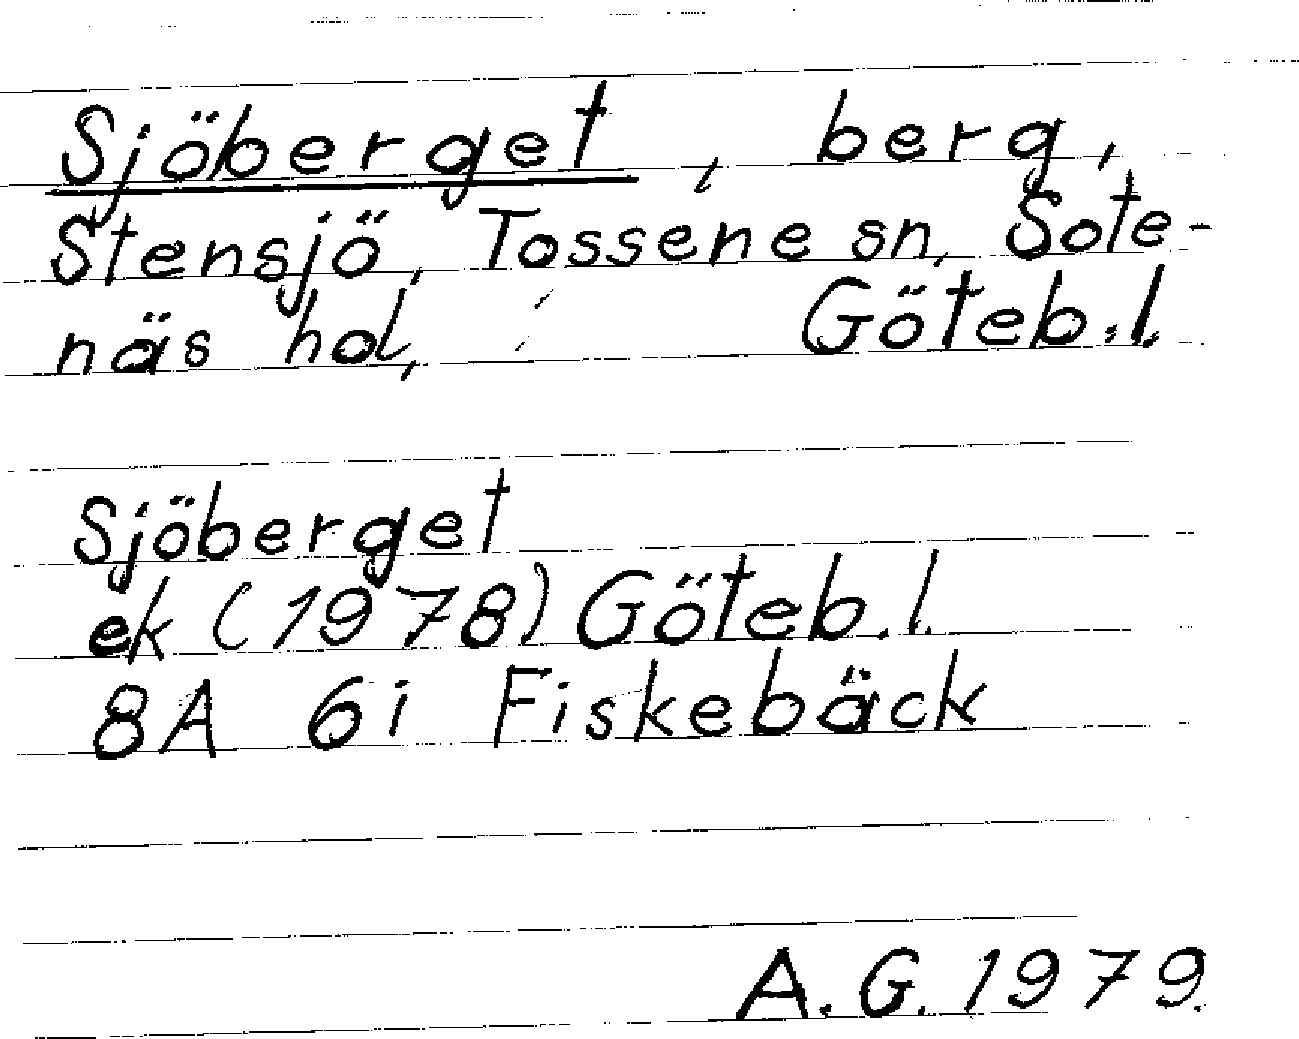 Sjöberget, berg,
Stensjö, Tossene sn, Sote-
näs hd, Göteb.l.
Sjöberget
ek (1978) Göteb.l.
8A 6i Fiskebäck
A.G. 1979.